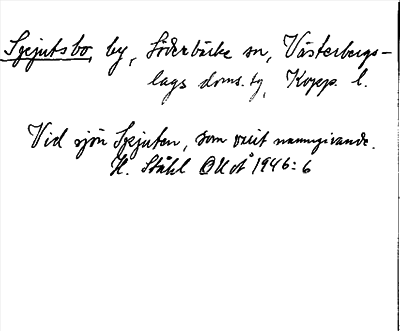 Spjutsbo, by, Söderbärke sn, Västerbergs-
lags doms. tg, Kopp. l.
Vid sjön Spjuten, som varit namngivande.
H. Ståhl OUoÅ 1946: 6